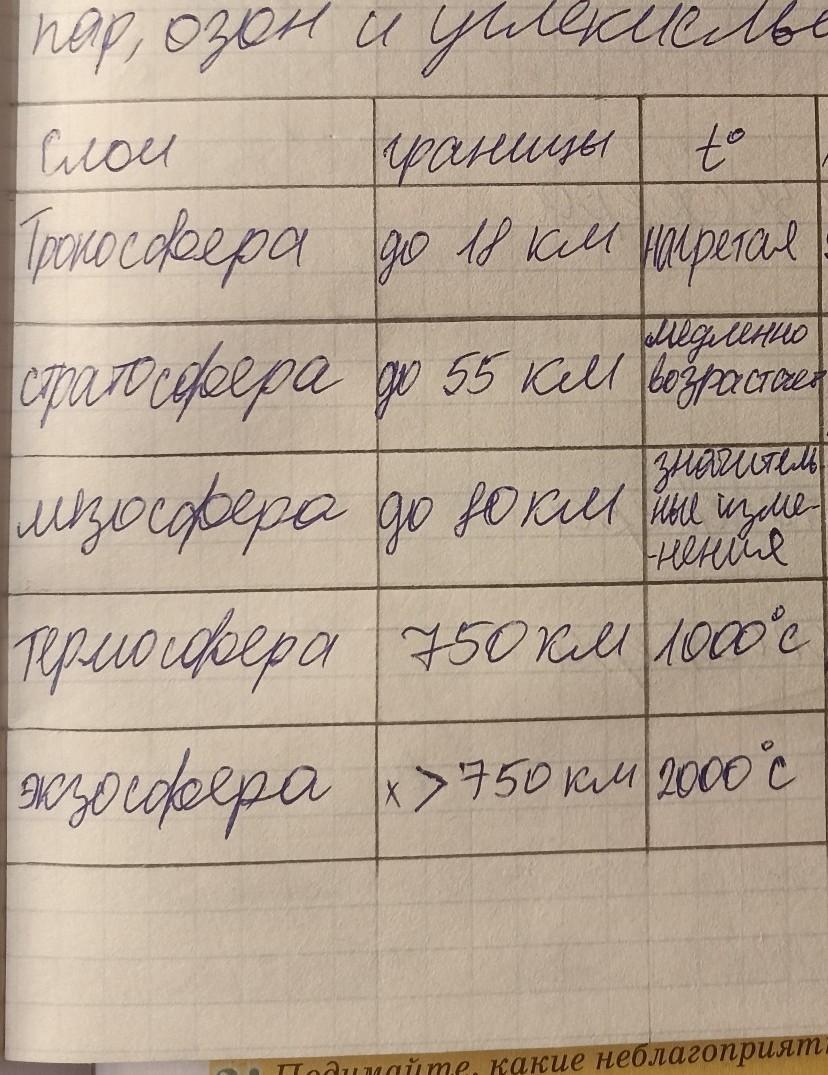 пар, озон и углекислы
Слои границы t°
Тропосфера до 18 км нагретая
стратосфера до 55 км медленно
возрастает
мезосфера до 80 км значитель
ные изме-
-нения
термосфера 750 км 1000°с
экзосфера х > 750 км 2000°с
Подумайте, какие неблагоприят